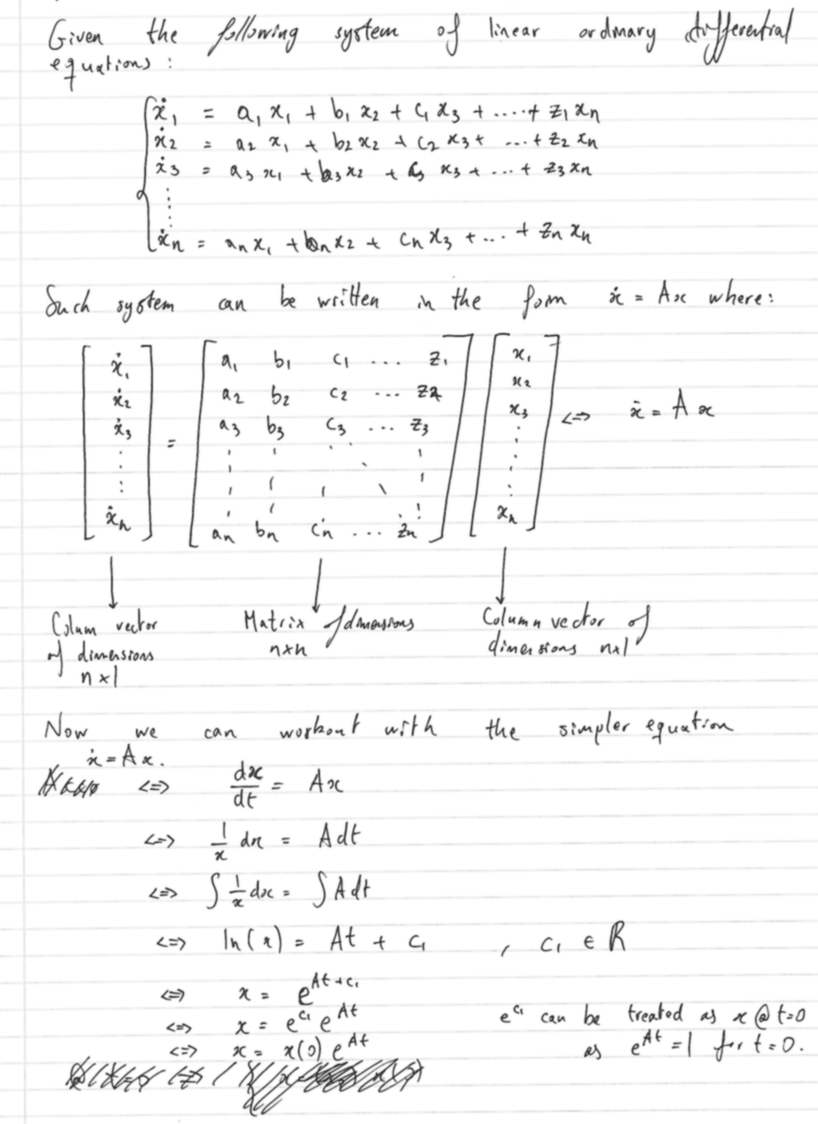 Given the following system of linear ordinary differential
equations :
ẋ₁ = a₁ x₁ + b₁ x₂ + c₁ x₃ + ....+ z₁ xₙ
ẋ₂ = a₂ x₁ + b₂ x₂ + c₂ x₃ + ...+ z₂ xₙ
ẋ₃ = a₃ x₁ + b₃ x₂ + c₃ x₃ + ... + z₃ xₙ
ẋₙ = aₙ x₁ + bₙ x₂ + cₙ x₃ + ... + zₙ xₙ
Such system can be written in the form ẋ = Ax where:
[ẋ₁ ẋ₂ ẋ₃ ⋮ ẋₙ] = [a₁ b₁ c₁ ... z₁
a₂ b₂ c₂ ... z₂
a₃ b₃ c₃ ... z₃
⋮
aₙ bₙ cₙ ... zₙ] [x₁ x₂ x₃ ⋮ xₙ] <=> ẋ = A x
Colum vector of dimensions n×1
Matrix of dimensions n×n
Column vector of dimensions n×1
Now we can workout with the simpler equation
ẋ = Ax.
<=> dx/dt = Ax
<=> 1/x dx = A dt
<=> ∫ 1/x dx = ∫ A dt
<=> ln(x) = At + c₁ , c₁ ∈ R
<=> x = e^(At+c₁)
<=> x = e^(c₁) e^(At) e^(c₁) can be treated as x @ t=0
<=> x = x(0) e^(At) as e^(At) = 1 for t=0.